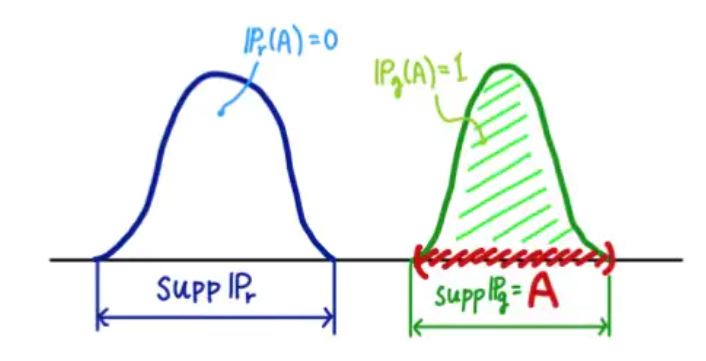 ℙr(A)=0
ℙg(A)=1
supp ℙr
supp ℙg = A